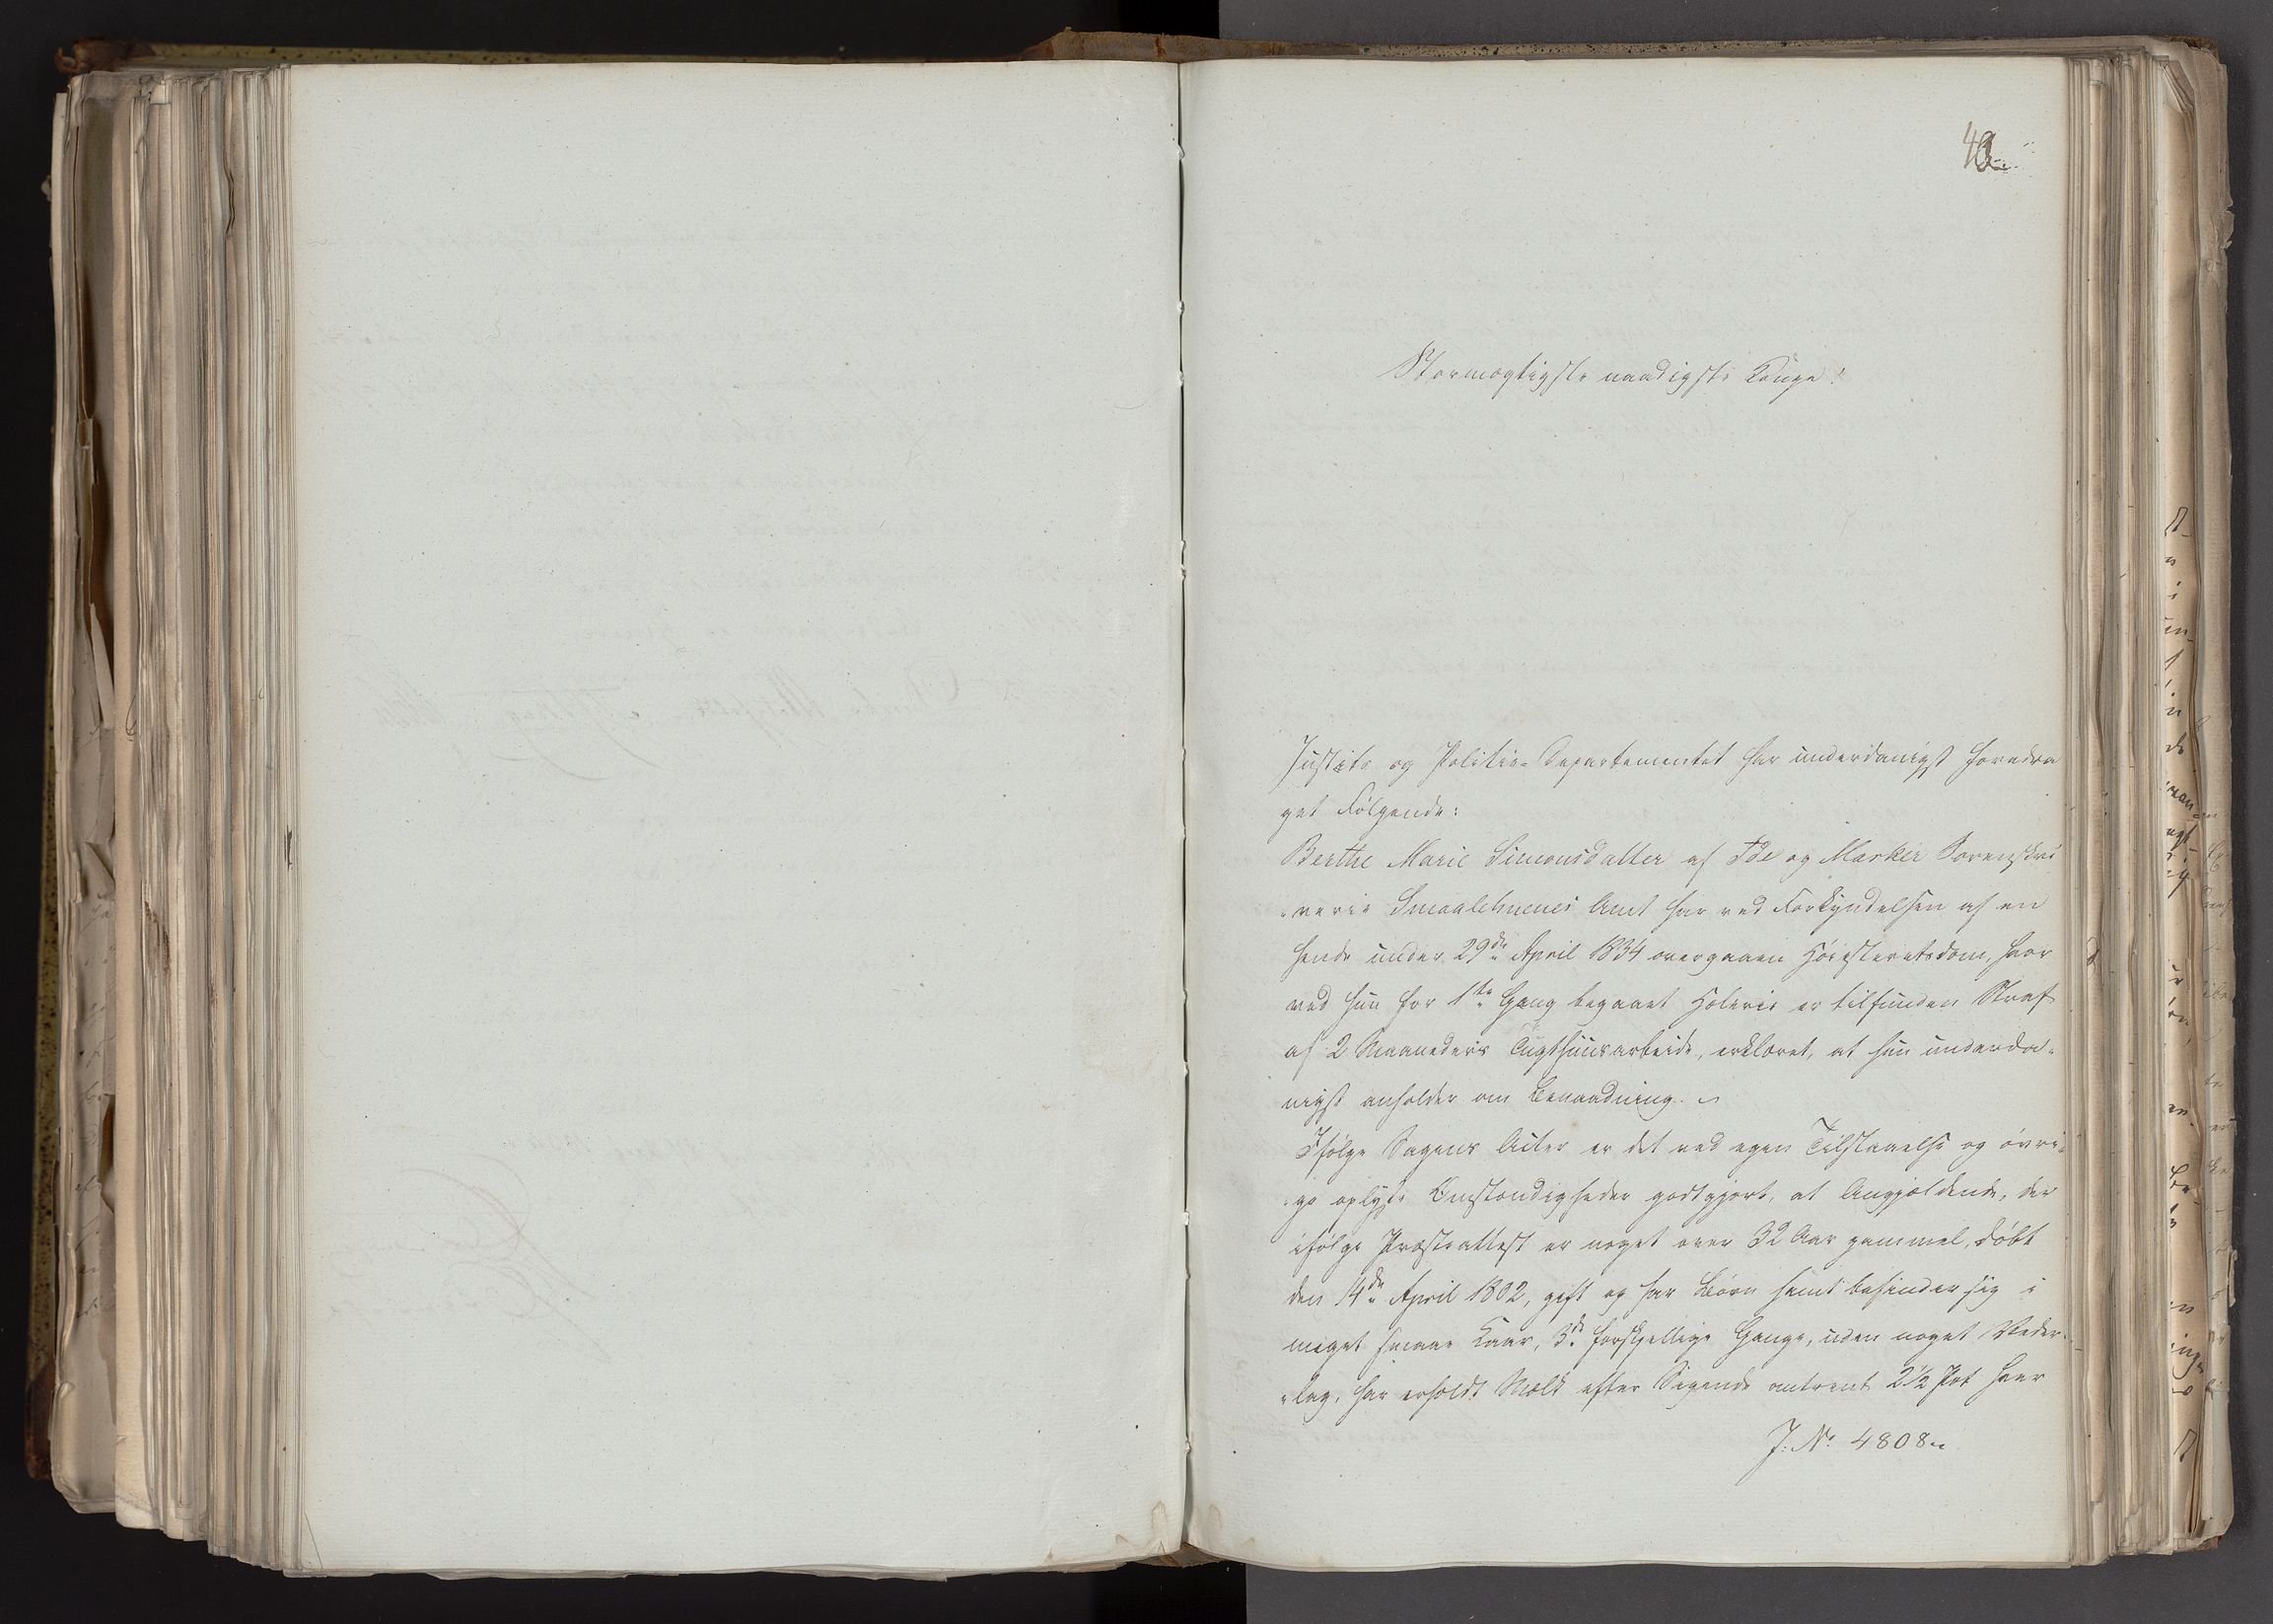 Stormægtigste naadigste Konge!
Justits og Politie-Departementet har underdanigst foredra
get Følgende:
Berthe Marie Simonsdatter af Ide og Marker Sorenskri
"verie Smaalehnenes Amt har ved Forkyndelsen af en
hende under 29de April 1834 overgaaen Høiesteretsdom, hvor
ved hun for 1ste Gang begaaet Hæleri er tilfunden Straf
af 2 Maaneders Tugthuusarbeide, erklæret, at hun underda-
nigst anholder om Benaadning.
Ifølge Sagens Acter er det ved egen Tilstaaelse og øvri-
ge oplyste Omstændigheder godtgjort, at Angjældende, der
ifølge Præsteattest er noget over 32 Aar gammel, døbt
den 14de April 1802, gift og har Børn samt befinder sig i
meget smaae Kaar, 3de forskjellige Gange, uden noget Veder-
"lag, har erholdt Melk efter Sigende omtrent 2½ Pot hver
J: No 4808